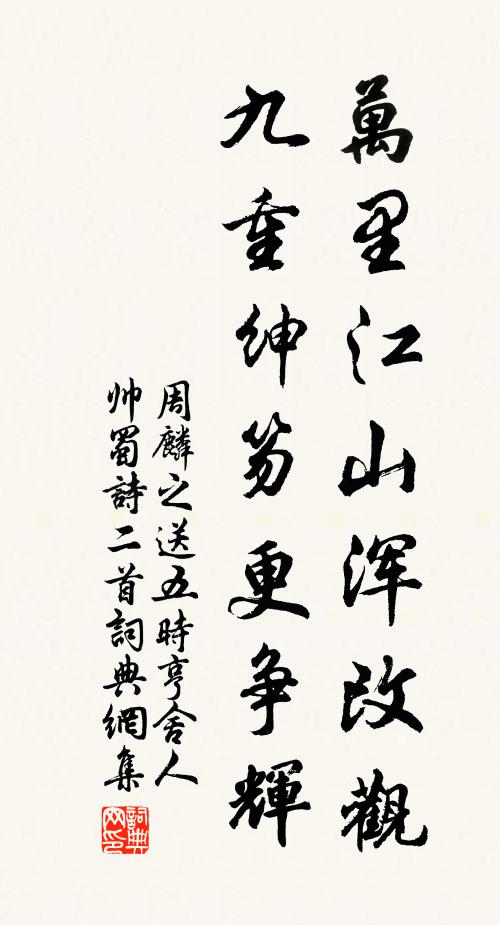 萬里江山浑改觀
九重绅笏更争輝
周麟之送五時亨舍人
帅蜀詩二首詞典網集
詞典网印